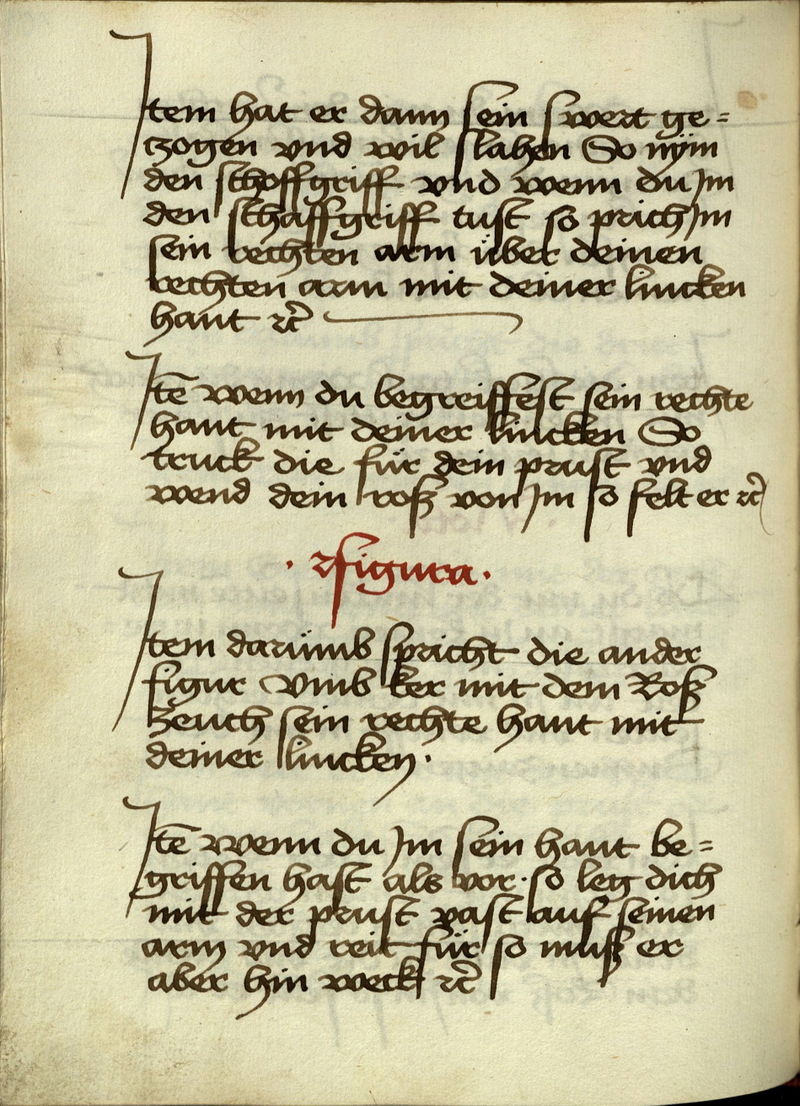 Item hat er dann sein swert ge=
zogen vnd wil slahen So nym
den schoffgriff vnd wenn du Im
den schaffgriff tust so prich Im
sein rechten arm über deinen
rechten arm mit deiner lincken
hant ꝛc̄
Itē wenn du begreiffest sein rechte
hant mit deiner lincken So
truck die für dein prust vnd
wend dein roß von Im so felt er ꝛc̄
· 2 figura ·
Item darümb spricht die ander
figur Vmb ker mit dem Roß
Zeuch sein rechte hant mit
deiner lincken ·
Itē wenn du Im sein hant be=
griffen hast als vor · so leg dich
mit der prust vast auf seinen
arm vnd reit für so muß er
aber hin weck ꝛc̄